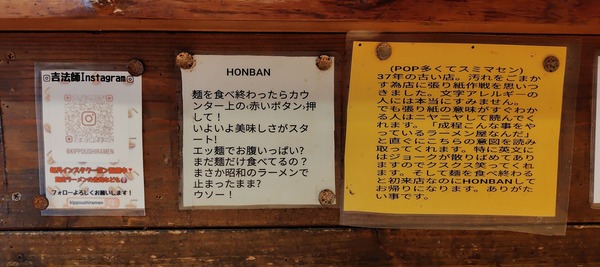 吉法師Instagram
@KIPPOUSHIRAMEN
フォローよろしくお願いします!
kippoushiramen
HONBAN
麺を食べ終わったらカウ
ンター上の‹赤いボタン›押
して!
いよいよ美味しさがスター
ト!
エッ麺でお腹いっぱい?
まだ麺だけ食べてるの?
まさか昭和のラーメンで
止まったまま?
ウソー!
(POP多くてスミマセン)
37年の古い店。汚れをごまか
す為店に張り紙作戦を思いつ
きました。文字アレルギーの
人には本当にすみません。
でも張り紙の意味がすぐわか
る人はニヤニヤして読んでく
れます。「成程こんな事をや
っているラーメン屋なんだ」
と直ぐにこちらの意図を読み
取ってくれます。特に英文に
はジョークが散りばめてあり
ますのでクスクス笑ってくれ
ます。そして麺を食べ終わる
と初来店なのにHONBANして
お帰りになります。ありがた
い事です。